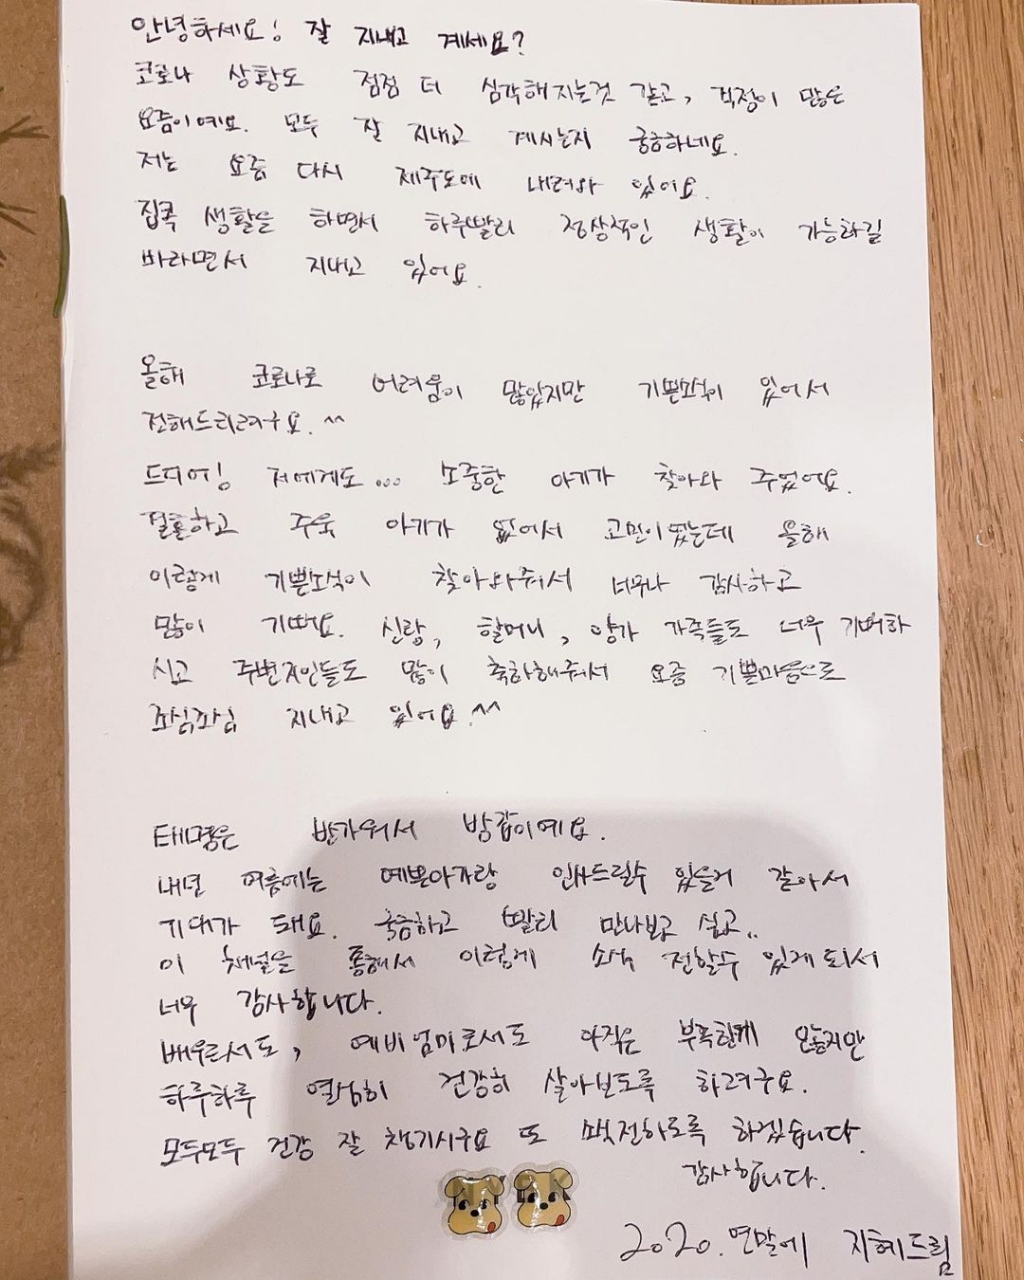 안녕하세요! 잘 지내고 계세요?
코로나 상황도 점점 더 심각해지는것 같고, 걱정이 많은
요즘이예요. 모두 잘 지내고 계시는지 궁금하네요.
저는 요즘 다시 제주도에 내려와 있어요.
집콕 생활을 하면서 하루빨리 정상적인 생활이 가능하길
바라면서 지내고 있어요.
올해 코로나로 어려움이 많았지만 기쁜소식이 있어서
전해드리려구요. ^^
드디어! 저에게도... 소중한 아기가 찾아와 주었어요.
결혼하고 주욱 아기가 없어서 고민이였는데 올해
이렇게 기쁜소식이 찾아와줘서 너무나 감사하고
많이 기뻐요. 신랑, 할머니, 양가 가족들도 너무 기뻐하
시고 주변지인들도 많이 축하해줘서 요즘 기쁜마음으로
조심조심 지내고 있어요.^^
태명은 반가워서 방갑이예요.
내년 여름에는 예쁜아가랑 인사드릴수 있을거 같아서
기대가 돼요. 궁금하고 빨리 만나보고 싶고..
이 채널을 통해서 이렇게 소식 전할수 있게되서
너무 감사합니다.
배우로서도, 예비엄마로서도 아직은 부족한게 많지만
하루하루 열심히 건강히 살아보도록 하려구요.
모두모두 건강 잘 챙기시구요 또 소식전하도록 하겠습니다.
감사합니다.
2020. 연말에 지혜드림